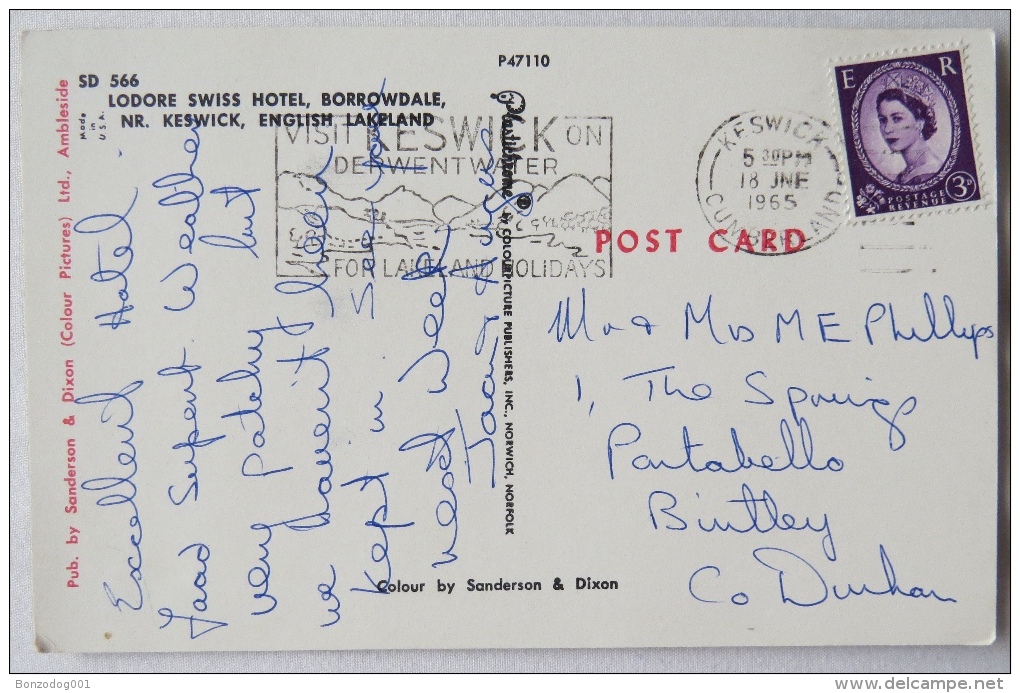 P47110
SD 566
LODORE SWISS HOTEL, BORROWDALE,
NR. KESWICK, ENGLISH LAKELAND
Made
in
U.S.A.
Pub. by Sanderson & Dixon (Colour Pictures) Ltd., Ambleside
VISIT KESWICK ON
DERWENTWATER
FOR LAKELAND HOLIDAYS
KESWICK
5 30PM
18 JNE
1965
CUMBERLAND
E R
POSTAGE
REVENUE
3D
POST CARD
Plastichrome ® by COLOURPICTURE PUBLISHERS, INC., NORWICH, NORFOLK
Excellent Hotel.
Food Superb. Weather
very Patchy but
we haven't been
Kept in See you
next week
Mr & Mrs M E Phillips
1, The Spring
Portobello
Birtley
Co Durham
Colour by Sanderson & Dixon
Bonzodog001
delcampe.net